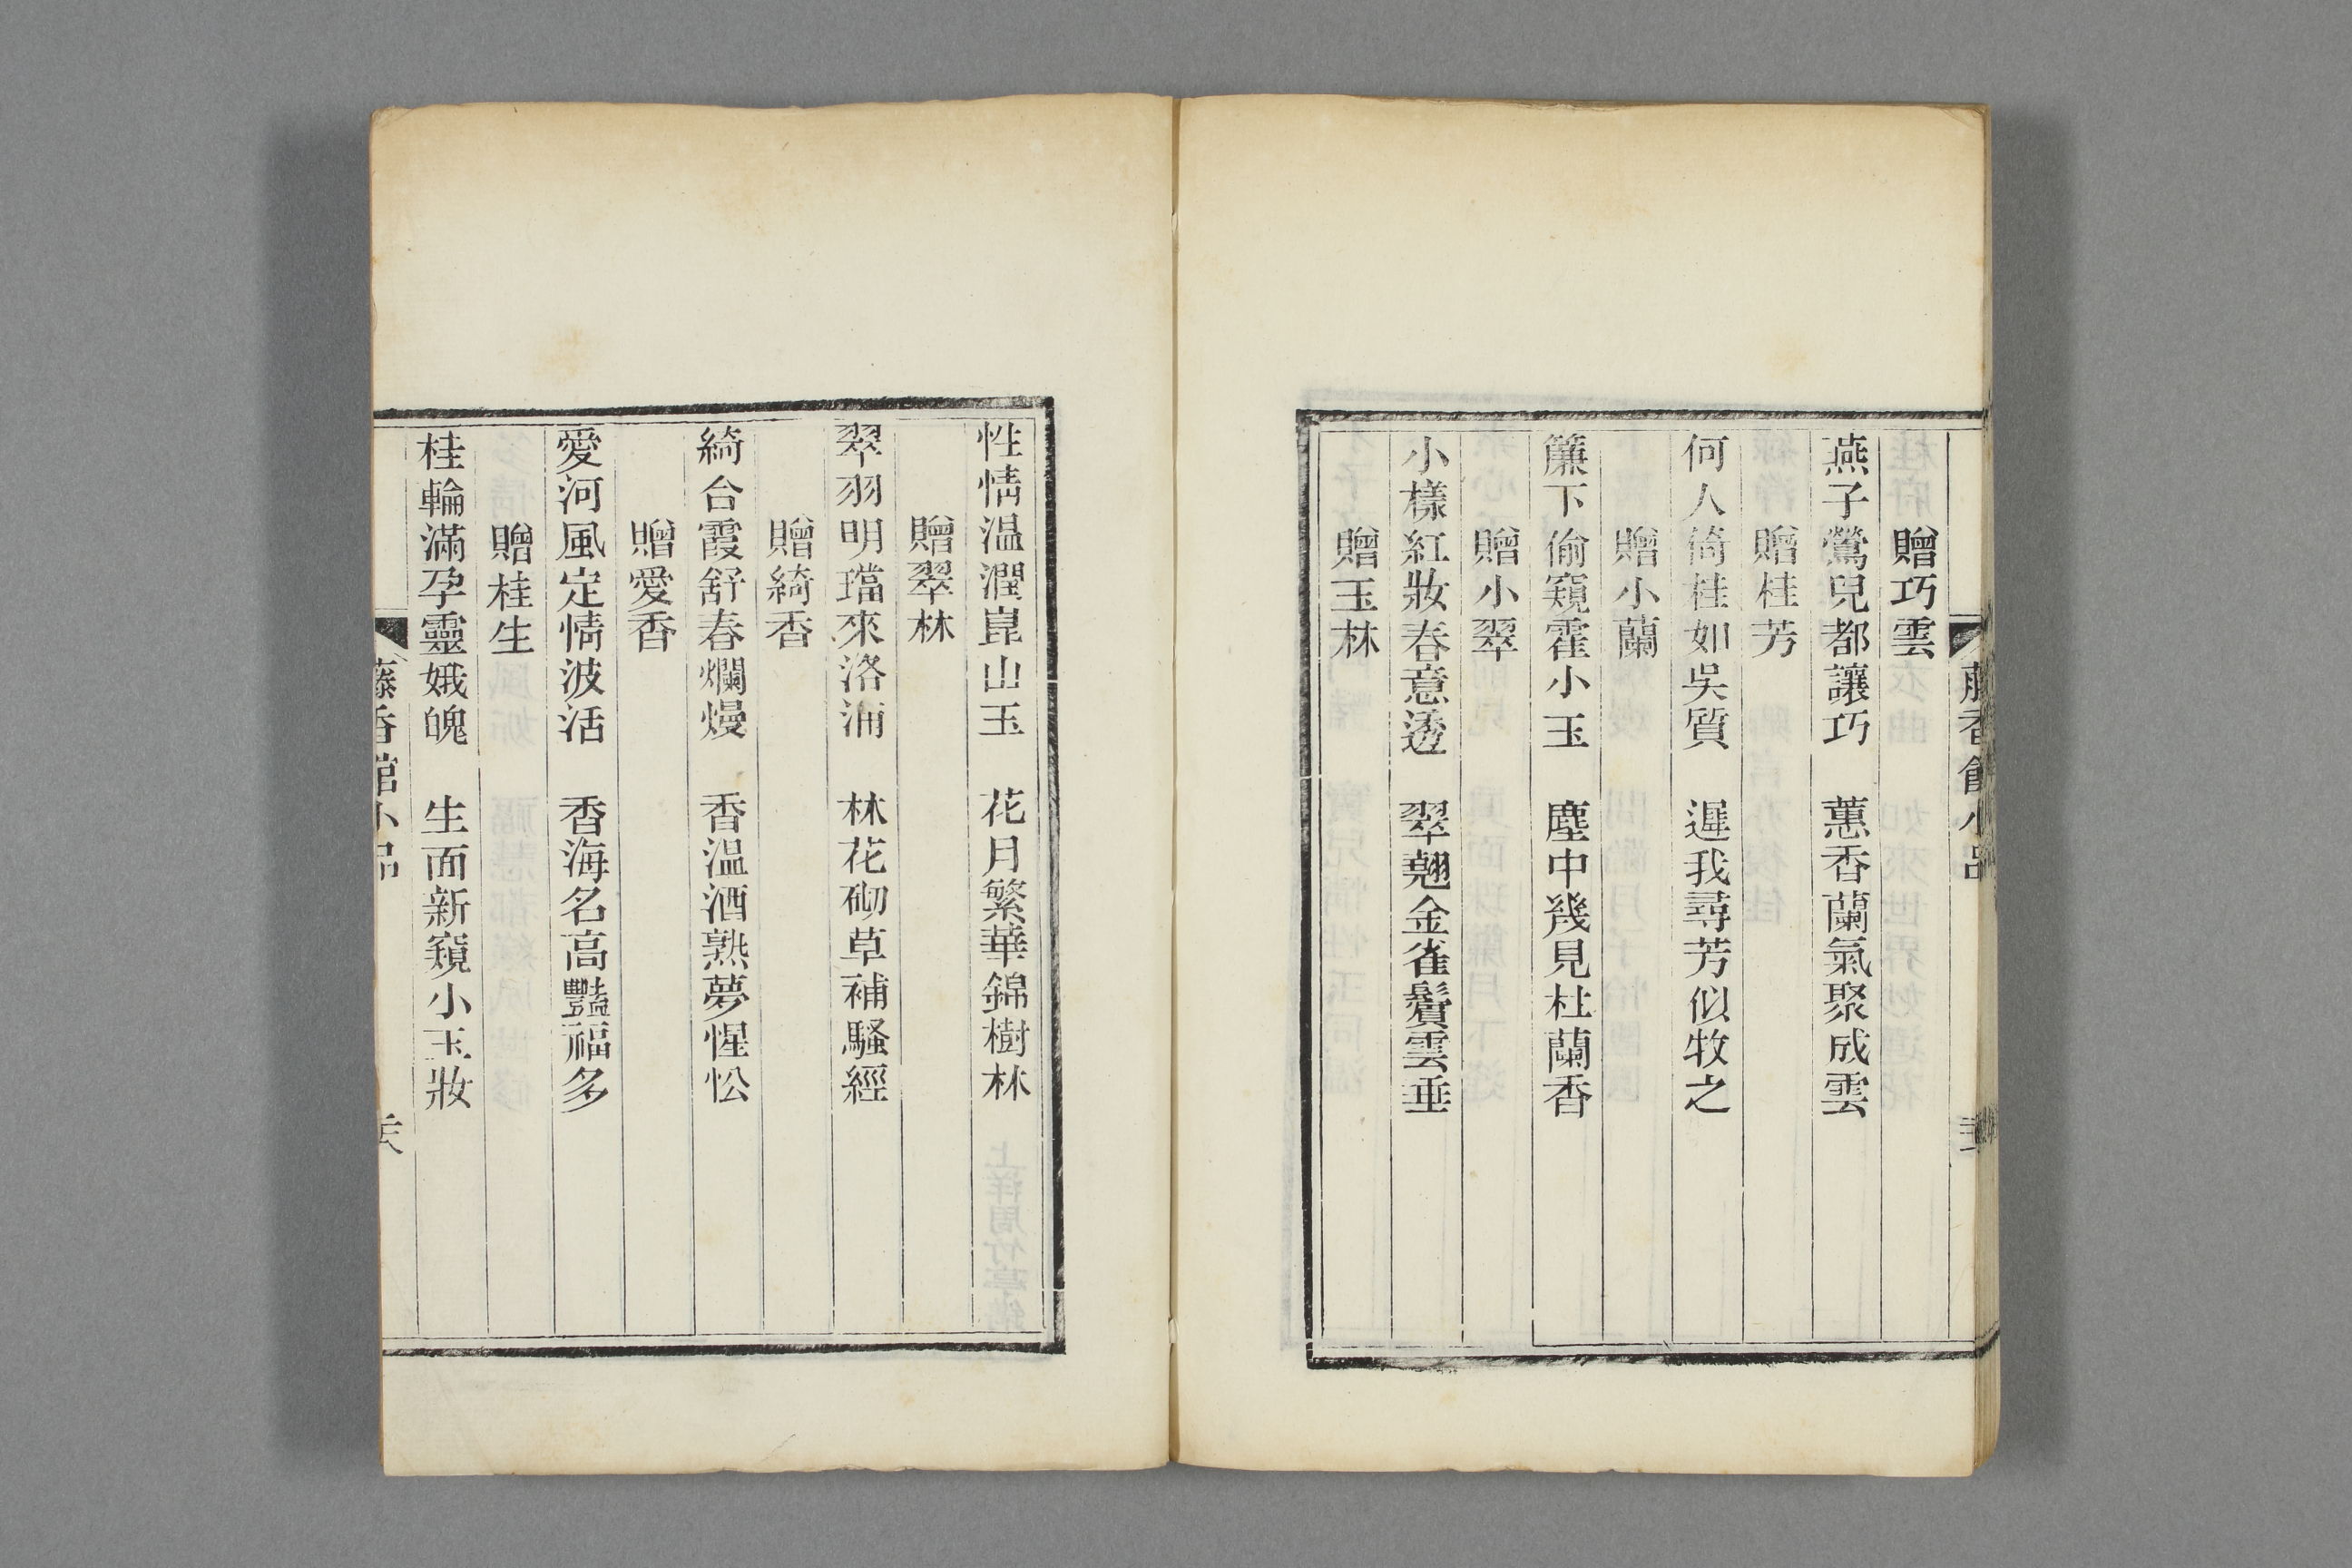 藤香館小品
贈巧雲
燕子鶯兒都讓巧　蕙香蘭氣聚成雲
贈桂芳
何人倚桂如吳質　遲我尋芳似牧之
贈小蘭
簾下偷窺霍小玉　塵中幾見杜蘭香
贈小翠
小樣紅妝春意透　翠翹金雀鬢雲垂
贈玉林
性情温潤崑山玉　花月繁華錦樹林
贈翠林
翠羽明璫來洛浦　林花砌草補騷經
贈綺香
綺合霞舒春爛熳　香温酒熟夢惺忪
贈愛香
愛河風定情波活　香海名高豔福多
贈桂生
桂輪滿孕靈娥魄　生面新窺小玉妝
藤香館小品